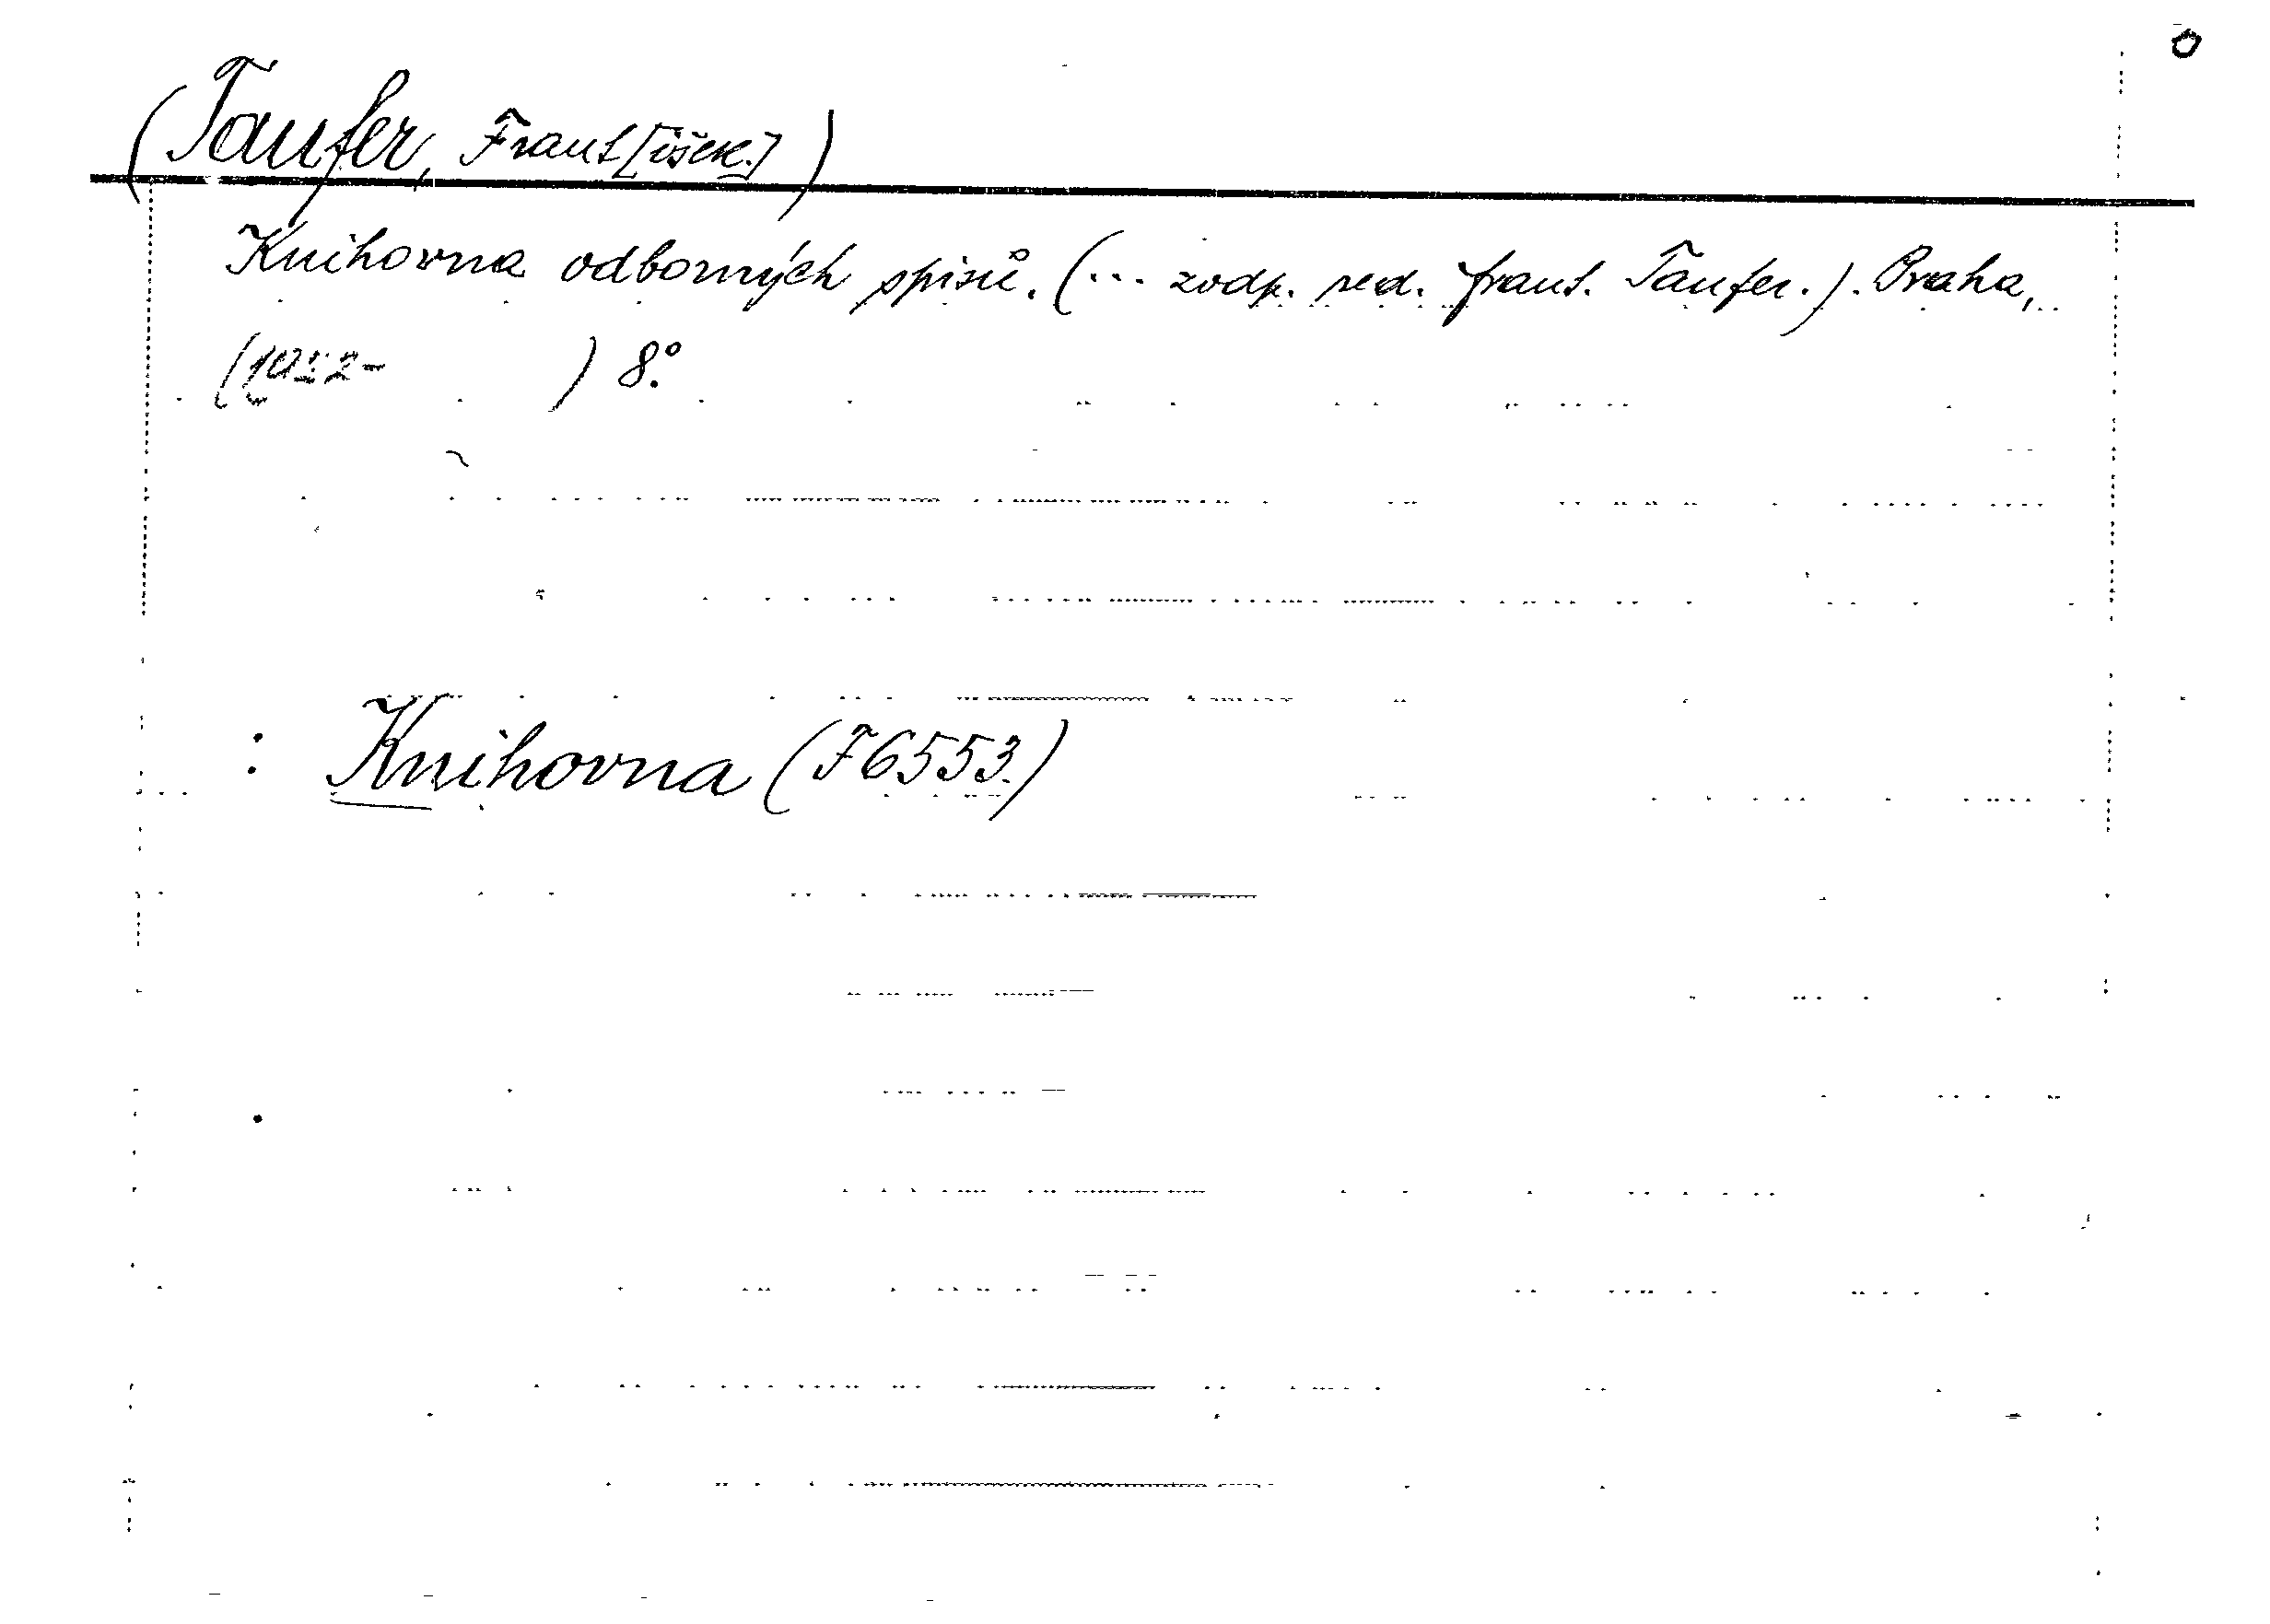 0
(Taufer, Frant[išek.])
Knihovna odborných spisů. (... zodp. red. Frant. Taufer.). Praha,
) 8°.
: Knihovna (F6553.)